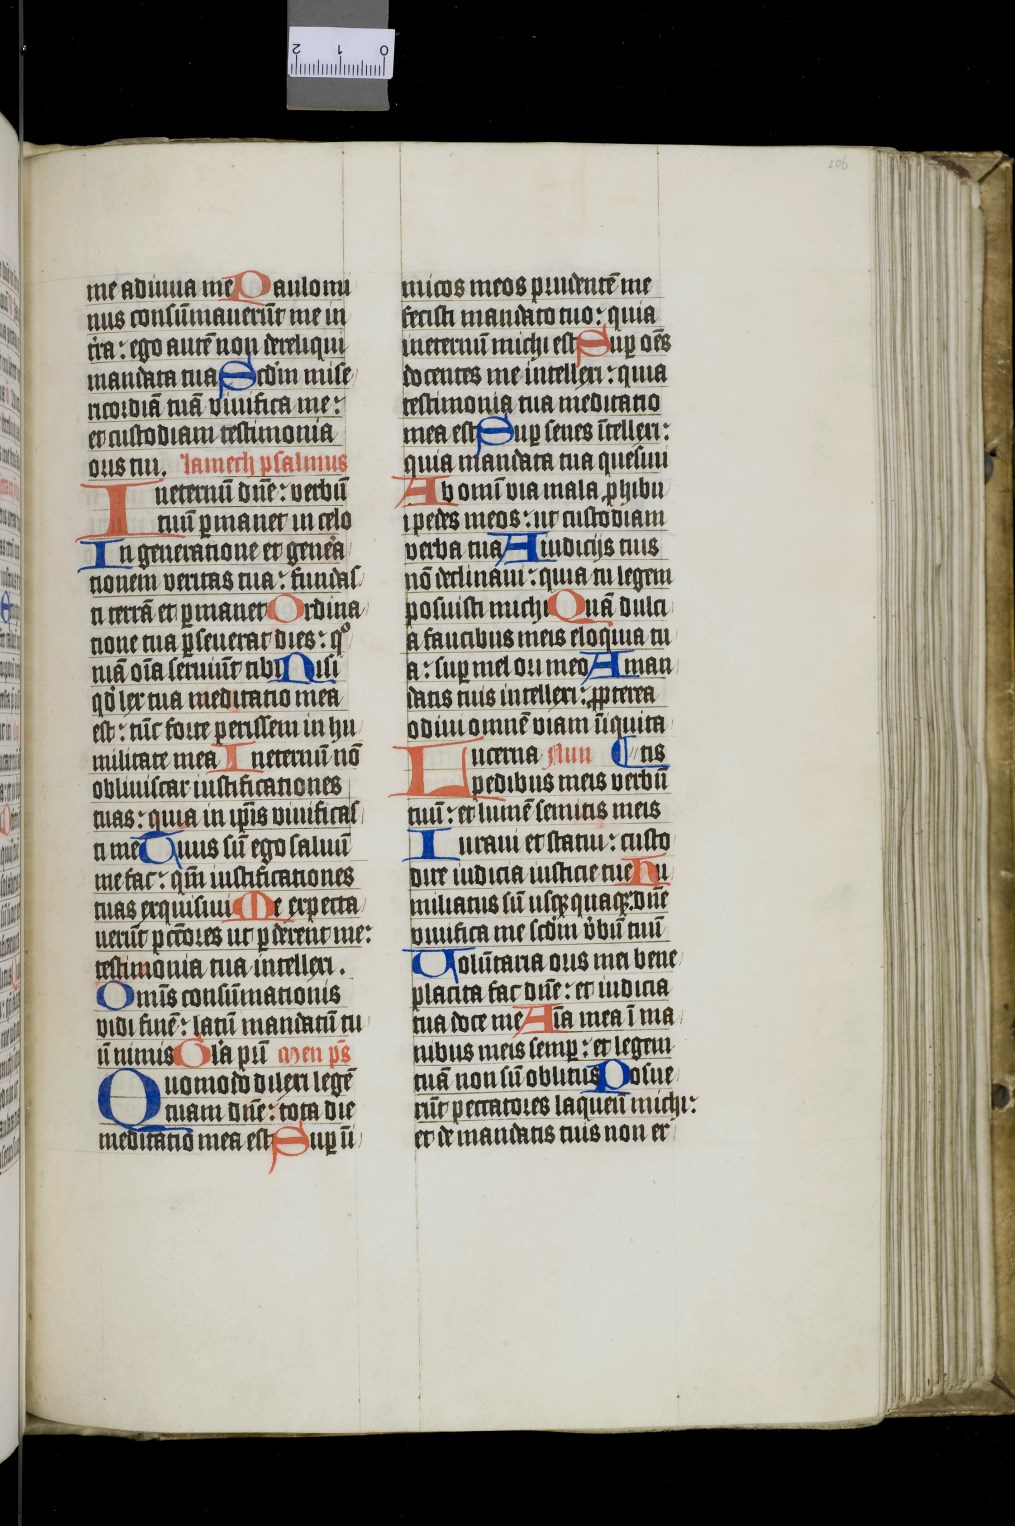 2 1 0
106
me adiuua mē Paulomi
nus consūmauerūt me in
tr̄a : ego autē non dereliqui
mandata tua Scd̄m mise
ricordiā tuā viuifica me :
et custodiam testimonia
oris tui . lamech psalmus
Ineternū dn̄e : verbū
tuū ꝑmanet in celo
In generatione et genera
tionem veritas tua : fundas
ti terrā et ꝑmanet Ordina
tione tua ꝑseuerat dies : qº
niā oīa seruiūt tibi Nisi
qď lex tua meditatio mea
est : tūc forte perissem in hu
militate mea Ineternū nō
obliuiscar iustificationes
tuas : quia in ip̄is viuificas
ti me Tuus sū ego saluū
me fac : qm̄ iustificationes
tuas exquisiui Me expecta
uerūt pctōres ut ꝑderent me :
testimonia tua intellexi .
Omīs consūmationis
vidi finē : latū mandatū tu
ū nimis Gl̄a pīi men pˢ
Quomodo dilexi legē
tuam dn̄e : tota die
meditatio mea est Suꝑ ī
micos meos prudentē me
fecisti mandato tuo : quia
ineternū michi est Suꝑ oēs
docentes me intellexi : quia
testimonia tua meditatio
mea est Suꝑ senes ītellexi :
quia mandata tua quesiui
Ab omī via mala ꝓhibu
i pedes meos : ut custodiam
verba tua A iudicijs tuis
nō declinaui : quia tu legem
posuisti michi Quā dulci
a faucibus meis eloquia tu
a : suꝑ mel ori meo A man
datis tuis intellexi : ꝓpterea
odiui omnē viam īiquita
Lucerna Nun tis
pedibus meis verbū
tuū : et lumē semitis meis
Iuraui et statui : custo
dire iudicia iusticie tue Hu
miliatus sū usqꝫ quaqꝫ dn̄e
viuifica me scd̄m v̄bū tuū
Uolūtaria oris mei bene
placita fac dn̄e : et iudicia
tua doce me Aīa mea ī ma
nibus meis semꝑ : et legem
tuā non sū oblitus Posue
rūt peccatores laqueū michi :
et de mandatis tuis non er